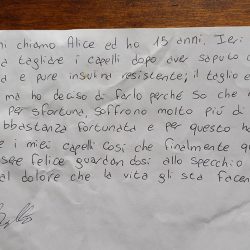 mi chiamo Alice ed ho 15 anni. Ieri
a tagliare i capelli dopo aver saputo
a e pure insulino resistente; il taglio e
ma ho deciso di farlo perché so che
per sfortuna, soffrono molto più di
bbastanza fortunata e per questo ho
e i miei capelli così che finalmente qu
sere felice guardandosi allo specchio
al dolore che la vita gli sta facen